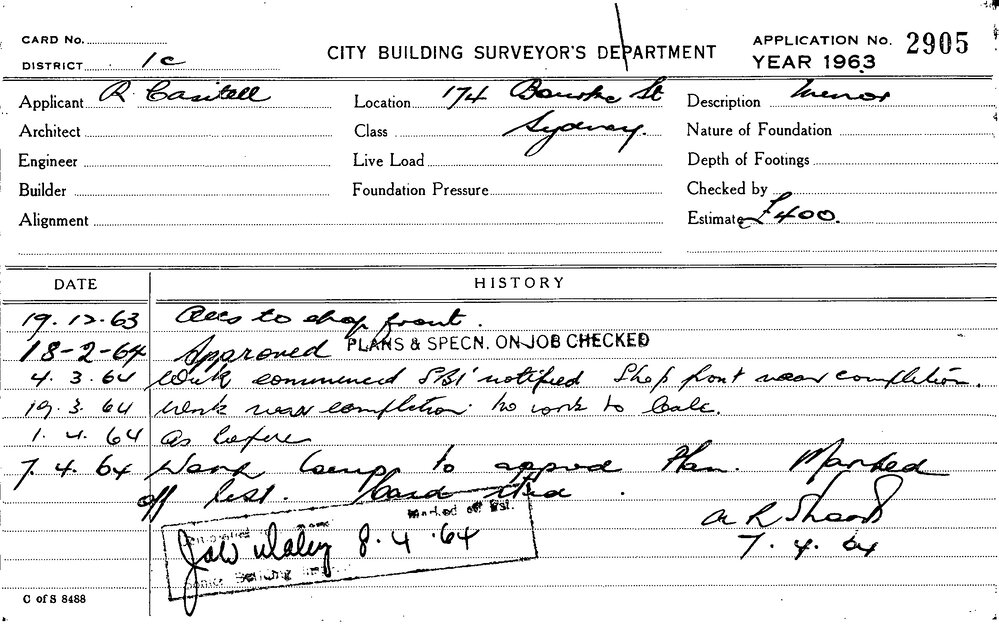 CARD No.
DISTRICT 1c
CITY BUILDING SURVEYOR'S DEPARTMENT
APPLICATION No. 2905
YEAR 1963
Applicant R
Location 174 Bourke St
Description Minor
Architect
Class Sydney.
Nature of Foundation
Engineer
Live Load
Depth of Footings
Builder
Foundation Pressure
Checked by
Alignment
Estimate £400.
DATE HISTORY
19.12.63 Alts to shop front.
18-2-64 Approved PLANS & SPECN. ON JOB CHECKED
4.3.64 Work commenced SBI notified Shop front near completion.
19.3.64 Work near completion. no work to
1.4.64 As before
7.4.64 Work to approd Plan. Marked
off list. Card
Marked off list.
8.4.64
Senior Building
A R
7.4.64
C of S 8488